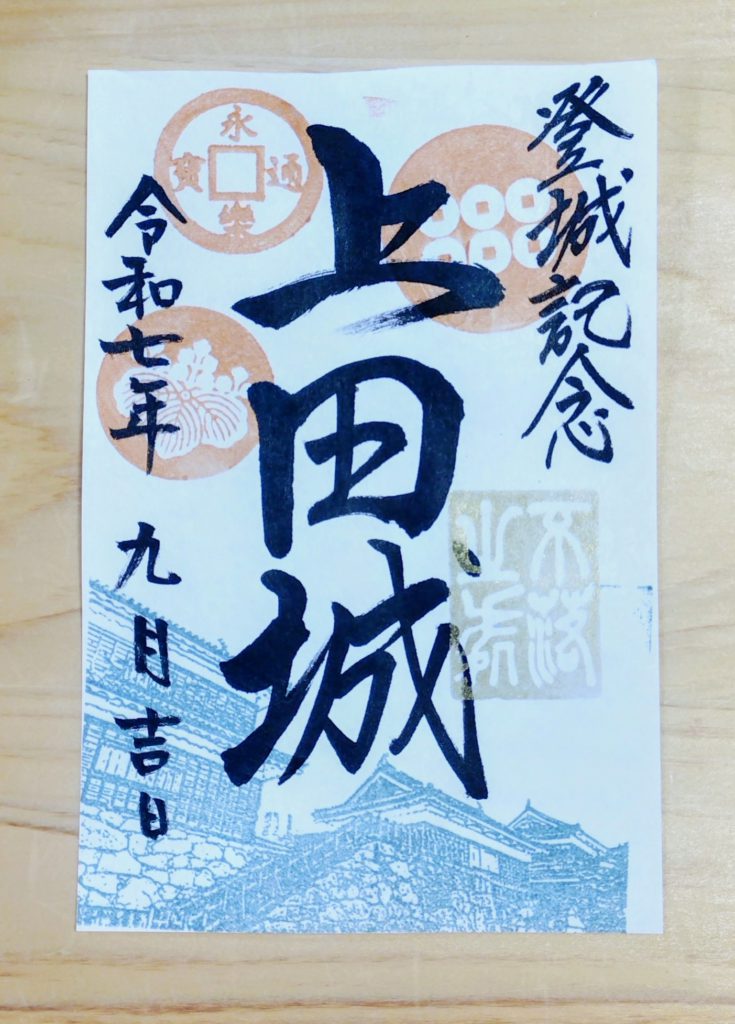 登城記念
上田城
令和七年 九月吉日
永樂通寳
不落之